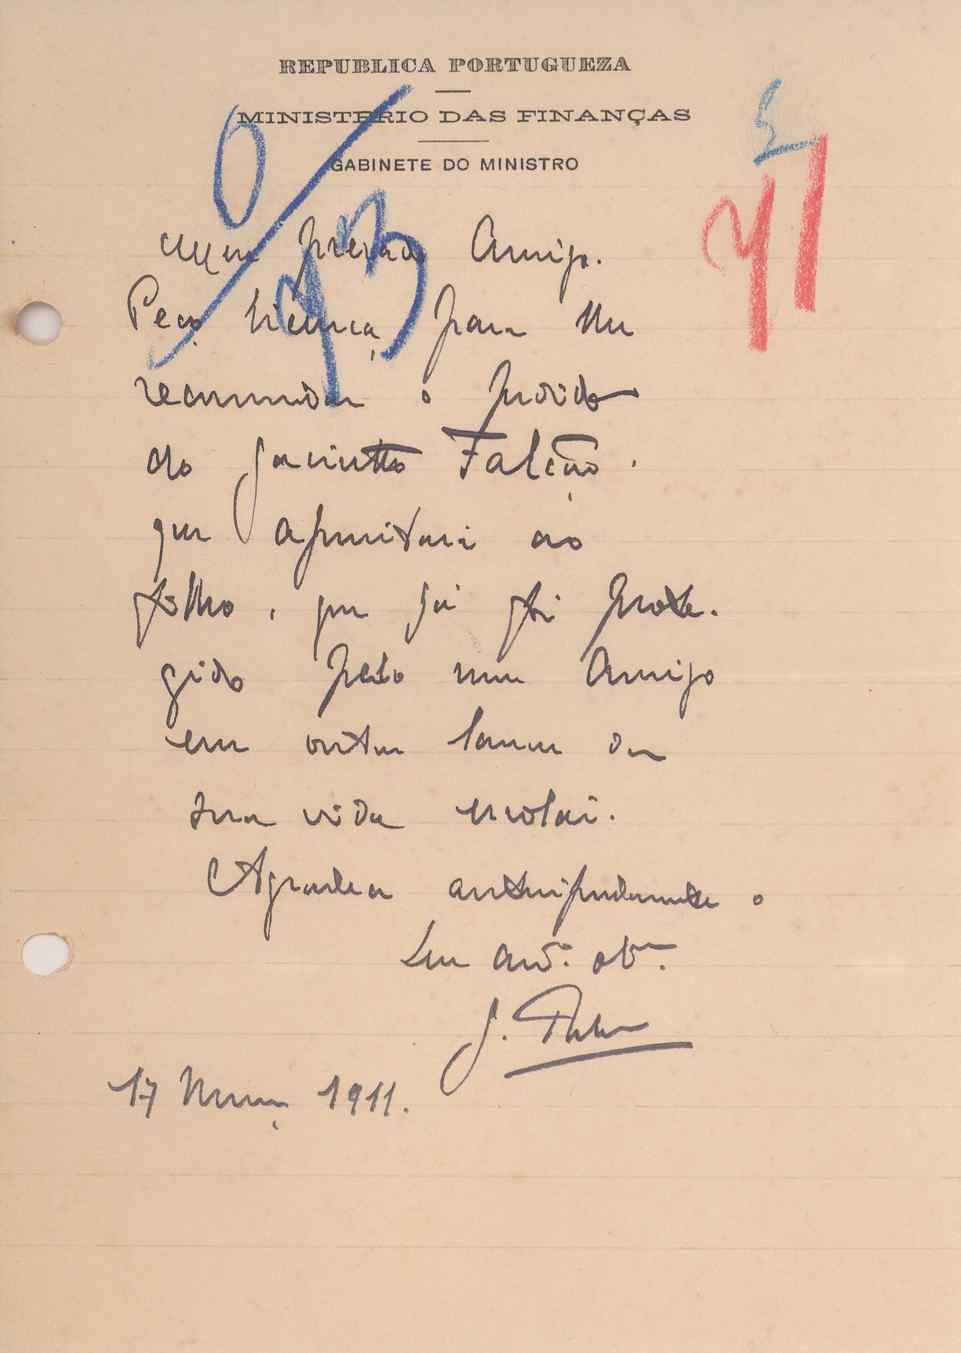 REPUBLICA PORTUGUEZA
MINISTERIO DAS FINANÇAS
GABINETE DO MINISTRO
5
0/93
41
Meu prezado Amigo.
Peço licença para lhe
recommendar o pedido
do Jacintho Falcão.
que aproveitará ao
filho, que já foi prote-
gido pelo meu Amigo
em outro lance da
sua vida escolar.
Agradece antecipadamente o
Seu
J.
17 Março 1911.